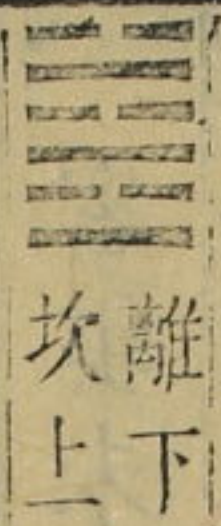 離下
坎上